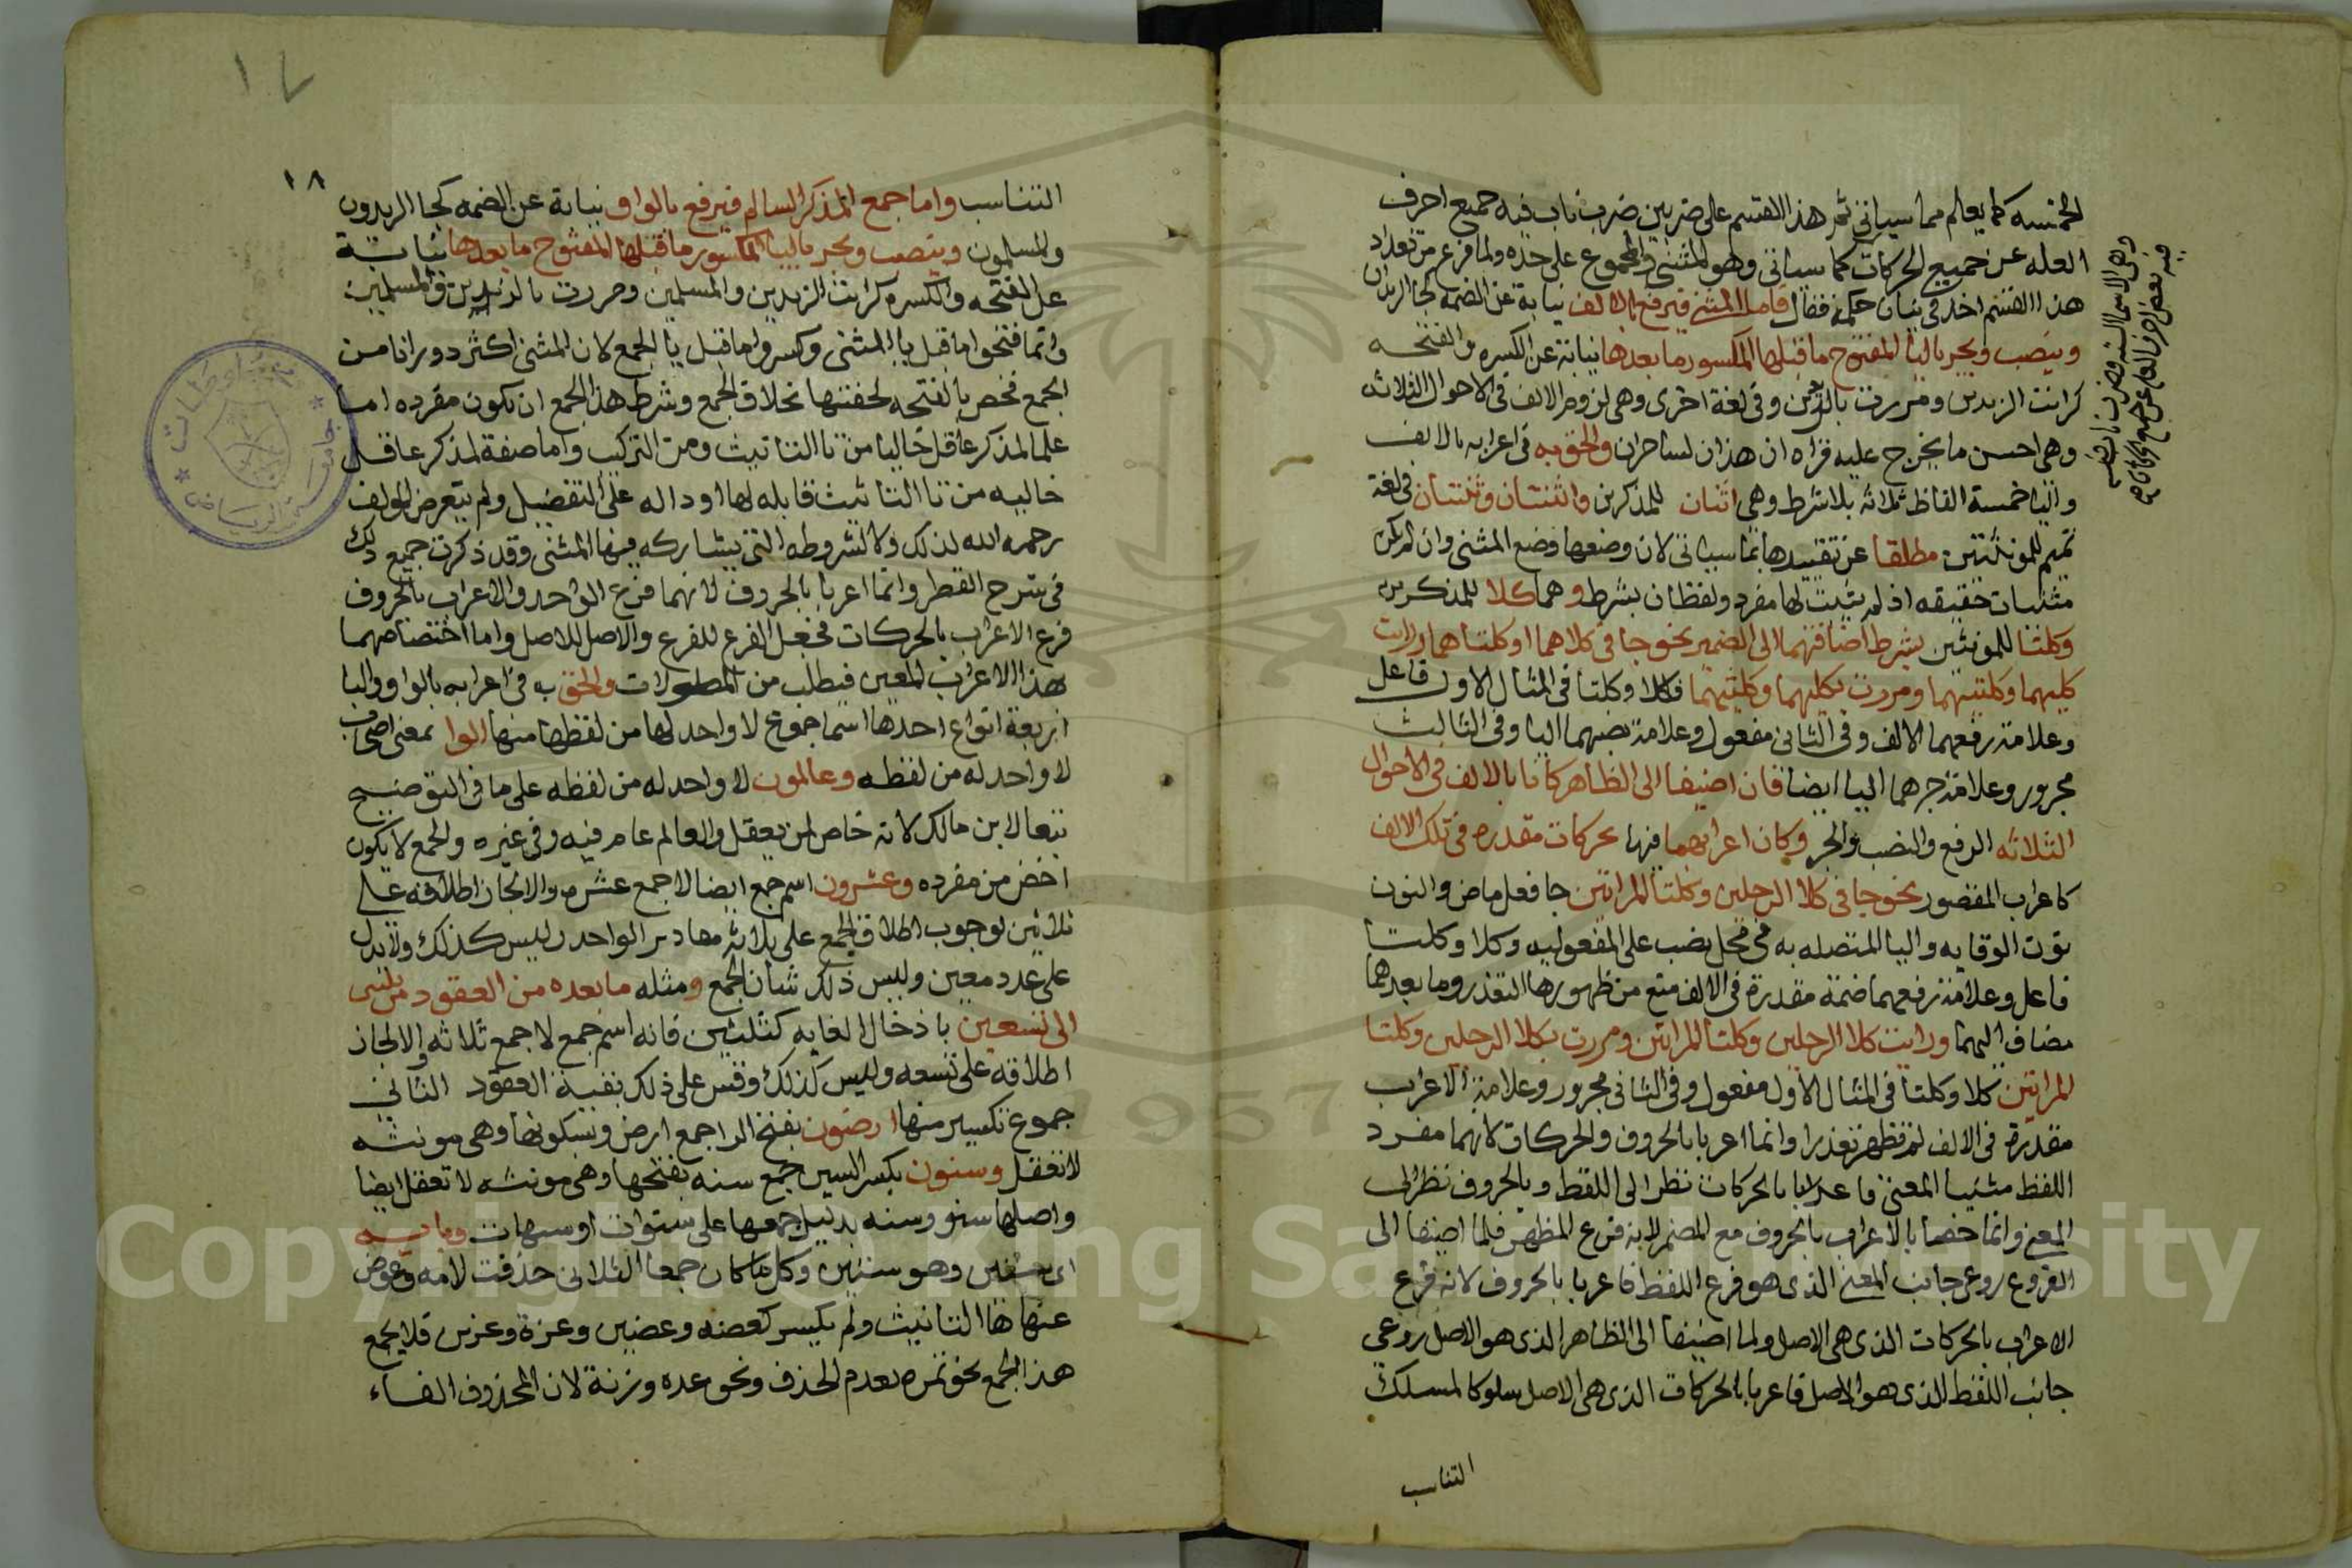 الخمسه كما يعلم مما سياتي ثم هذا القسم على ضربين ضرب ناب فيه جميع احرف
العله عن جميع الحركات كما سياتي وهو المثنى والمجموع على حده ولما فرغ من تعداد
هذا القسم اخذ في بيان حكمه فقال فاما المثنى فيرفع بالالف نيابة عن الضمه كجا الزيدان
وينصب ويجر باليا المفتوح ما قبلها المكسور ما بعدها نيابة عن الكسره والفتحه
كرايت الزيدين ومررت بالزيدين وفي لغة اخرى وهي لزوم الالف في الاحوال الثلاثه
وهي احسن ما يخرج عليه قراه ان هذان لساحران والحق به في اعرابه بالالف
واليا خمسة الفاظ ثلاثه بلا شرط وهي اثنان للمذكرين واثنتان وثنتان في لغة
تميم للمونثتين مطلقا عن تقييدها بما سياتي لان وضعها وضع المثنى وان لم يكن
مثنيات حقيقه اذ لم يثبت لها مفرد ولفظان بشرط وهما كلا للمذكرين
وكلتا للمونثين بشرط اضافتهما الى الضمير نحو جا في كلاهما او كلتاهما ورايت
كليهما وكلتيهما ومررت بكليهما وكلتيهما فكلا وكلتا في المثال الاول فاعل
وعلامة رفعهما الالف وفي الثاني مفعول وعلامة نصبهما اليا وفي الثالث
مجرور وعلامة جرهما اليا ايضا فان اضيفا الى الظاهر كانا بالالف في الاحوال
الثلاثه الرفع والنصب والجر وكان اعرابهما فيها بحركات مقدره في تلك الالف
كاعراب المقصور نحو جا في كلا الرجلين وكلتا المراتين جا فعل ماض والنون
نون الوقايه واليا المتصله به في محل نصب على المفعوليه وكلا وكلتا
فاعل وعلامة رفعهما ضمة مقدرة في الالف منع من ظهورها التعذر وما بعدهما
مضاف اليهما ورايت كلا الرجلين وكلتا المراتين ومررت بكلا الرجلين وكلتا
المراتين كلا وكلتا في المثال الاول مفعول وفي الثاني مجرور وعلامة الاعراب
مقدرة في الالف لم تظهر تعذرا وانما اعربا بالحروف والحركات لانهما مفرد
اللفظ مثنيا المعنى فاعربا بالحركات نظرا الى اللفظ وبالحروف نظرا الى
المعنى وانما خصا بالاعراب بالحروف مع المضمر لانه فرع المظهر فلما اضيفا الى
الفروع روعي جانب المعنى الذي هو فرع اللفظ فاعربا بالحروف لانه فرع
الاعراب بالحركات الذي هي الاصل ولما اضيفا الى الظاهر الذي هو الاصل روعي
جانب اللفظ الذي هو الاصل فاعربا بالحركات الذي هي الاصل سلوكا لمسلك
التناسب
وهي الاسما السته وضرب ناب
فيه بعض احرف العله عن جميع الحركات
١٧
١٨
التناسب واما جمع المذكر السالم فيرفع بالواو نيابة عن الضمه كجا الزيدون
والمسلمون وينصب ويجر باليا المكسور ما قبلها المفتوح ما بعدها نيابة
عن الفتحه والكسره كرايت الزيدين والمسلمين ومررت بالزيدين والمسلمين
وانما فتحوا ما قبل يا المثنى وكسروا ما قبل يا الجمع لان المثنى اكثر دورانا من
الجمع فخص بالفتحه لخفتها بخلاف الجمع وشرط هذا الجمع ان يكون مفرده اما
علما لمذكر عاقل خاليا من تا التانيث ومن التركيب واما صفة لمذكر عاقل
خاليه من تا التانيث قابله لها او داله على التفضيل ولم يتعرض المولف
رحمه الله لذلك ولا لشروطه التي يشاركه فيها المثنى وقد ذكرت جميع ذلك
في شرح القطر وانما اعربا بالحروف لانهما فرع الواحد والاعراب بالحروف
فرع الاعراب بالحركات فجعل الفرع للفرع والاصل للاصل واما اختصاصهما
بهذا الاعراب المعين فيطلب من المطولات والحق به في اعرابه بالواو واليا
اربعة انواع احدها اسما جموع لا واحد لها من لفظها منها الوا بمعنى اصحاب
لا واحد له من لفظه وعالمون لا واحد له من لفظه على ما في التوضيح
تبعا لابن مالك لانه خاص لمن يعقل والعالم عام فيه وفي غيره والجمع لا يكون
اخص من مفرده وعشرون اسم جمع ايضا لا جمع عشره والا لجاز اطلاقه على
ثلاثين لوجوب اطلاق الجمع على ثلاثة مقادير الواحد وليس كذلك ولا يدل
على عدد معين وليس ذلك شان الجمع ومثله ما بعده من العقود من ثلثين
الى تسعين باذخال الغايه كثلثين فانه اسم جمع لا جمع ثلاثه والا لجاز
اطلاقه على تسعه وليس كذلك وقس على ذلك بقية العقود الثاني
جموع تكسير منها ارضون بفتح الرا جمع ارض وسكونها وهي مونثه
لا تعقل وسنون بكسر السين جمع سنه بفتحها وهي مونثه لا تعقل ايضا
واصلها سنو وسنه بدليل جمعها على سنوات او سنهات وبابه
اي سنين وهو سنين وكل ما كان جمعا لثلاثي حذفت لامه وعوض
عنها ها التانيث ولم يكسر كعضه وعضين وعزة وعزين فلا يجمع
هذا الجمع نحو تمره لعدم الحذف ونحو عده وزنة لان المحذوف الفاء
Copyright © King Saud University
1957